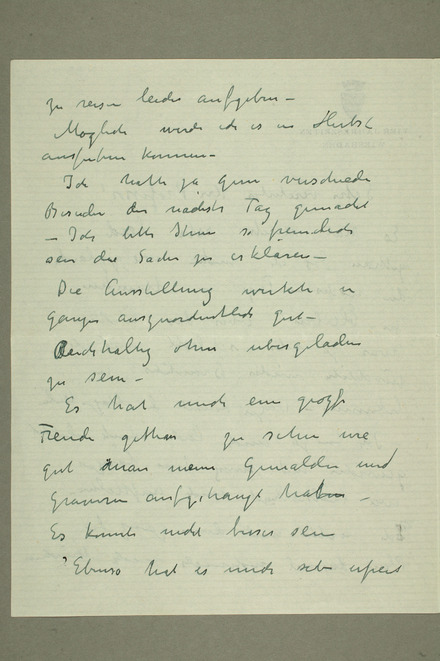 zu reisen leider aufgeben –
Möglich werde ich es im Herbst
ausführen können –
Ich hatte ja gern verschiedene
Besuche den nächsten Tag gemacht
– Ich bitte Ihnen so freundlich
sein die Sache zu erklären –
Die Ausstellung wirkte im
ganzen ausgezeichnet gut –
Reichhaltig ohne übergeladen
zu sein –
Es hat mich eine große
Freude gethan zu sehen wie
gut man meine Gemälde und
gravuren aufgehängt haben –
Es konnte nicht besser sein
Ebenso hat es mich sehr